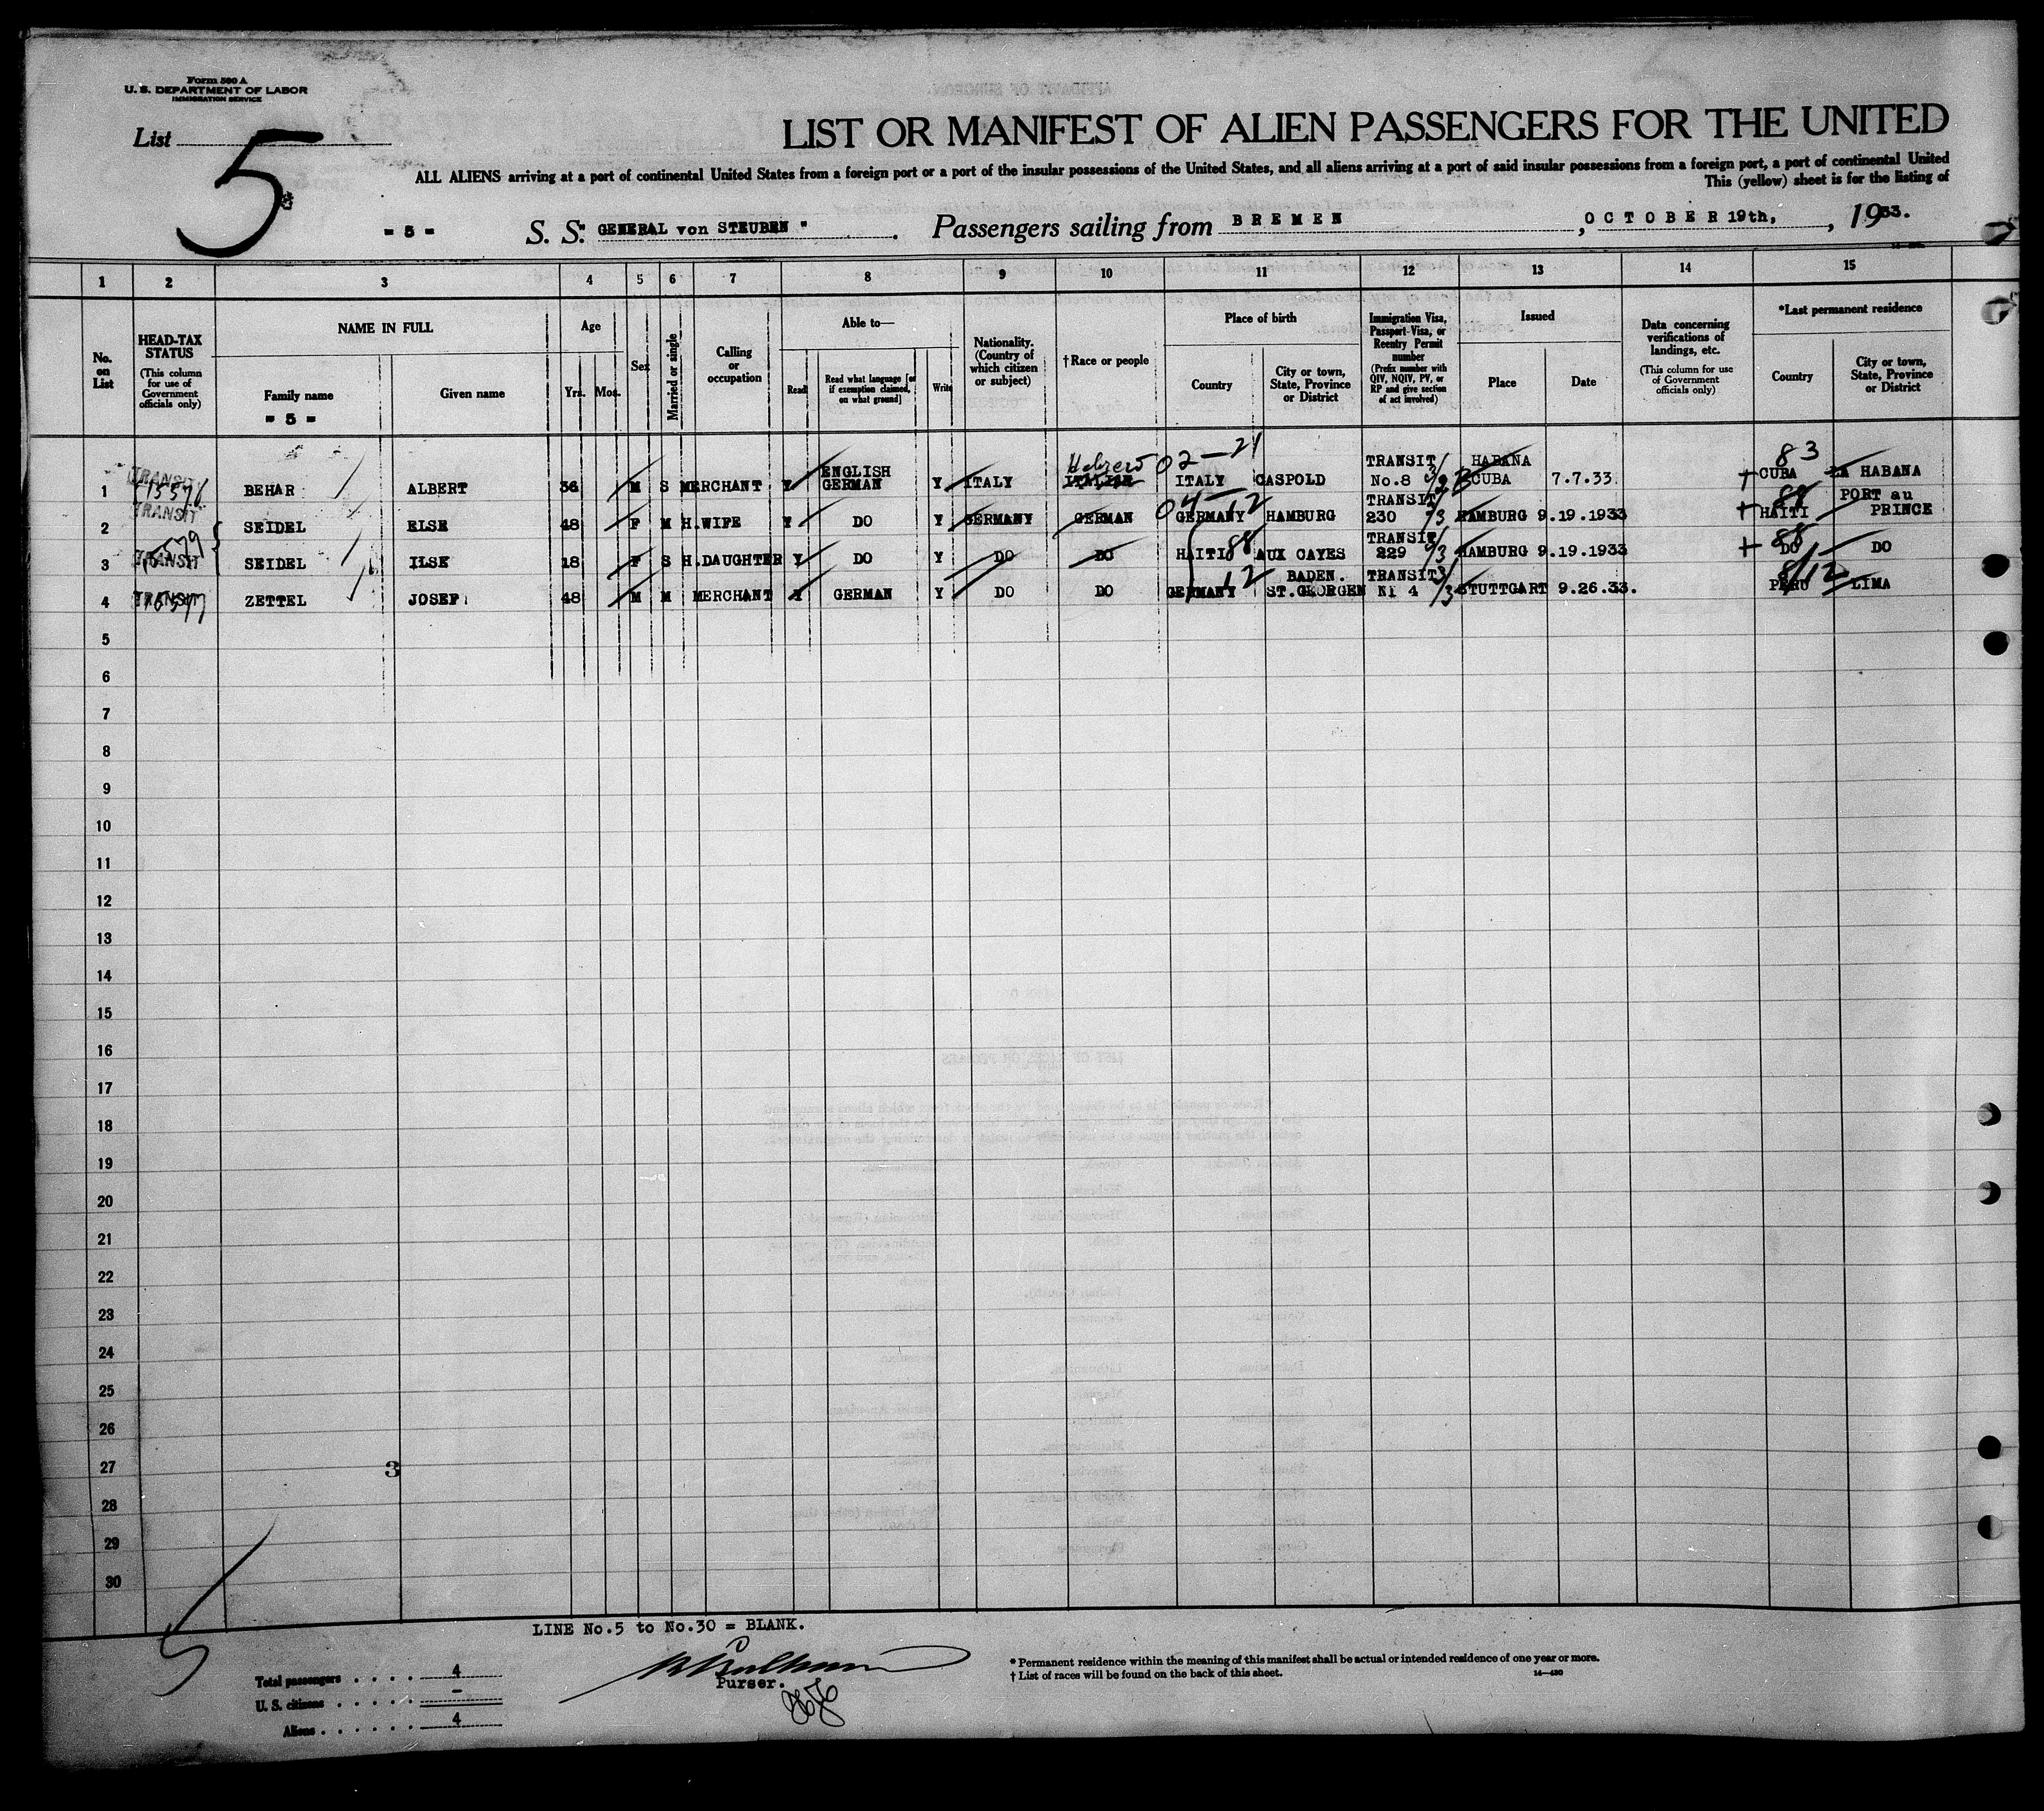 Form 500 A
U. S. DEPARTMENT OF LABOR
IMMIGRATION SERVICE
List 5
LIST OR MANIFEST OF ALIEN PASSENGERS FOR THE UNITED
ALL ALIENS arriving at a port of continental United States from a foreign port or a port of the insular possessions of the United States, and all aliens arriving at a port of said insular possessions from a foreign port, a port of continental United
This (yellow) sheet is for the listing of
- 5 - S. S. "GENERAL von STEUBEN" . Passengers sailing from BREMEN , OCTOBER 19th, , 1933.
1 2 3 4 5 6 7 8 9 10 11 12 13 14 15
No. on List
HEAD-TAX STATUS
(This column for use of Government officials only)
NAME IN FULL
Family name
- 5 -
Given name
Age
Yrs. Mos.
Sex
Married or single
Calling or occupation
Able to—
Read
Read what language [or if exemption claimed, on what ground]
Write
Nationality. (Country of which citizen or subject)
†Race or people
Place of birth
Country
City or town, State, Province or District
Immigration Visa, Passport Visa, or Reentry Permit number
(Prefix number with QIV, NQIV, PV, or RP and give section of act involved)
Issued
Place
Date
Data concerning verifications of landings, etc.
(This column for use of Government officials only)
*Last permanent residence
Country
City or town, State, Province or District
1 TRANSIT 15576 BEHAR ALBERT 36 M S MERCHANT Y ENGLISH GERMAN Y ITALY ITALIAN Hebrew 02-21 ITALY CASPOLD TRANSIT No.8 3/2 HABANA CUBA 7.7.33 83 CUBA LA HABANA
2 TRANSIT SEIDEL ELSE 48 F M H.WIFE Y DO Y GERMANY GERMAN 04-12 GERMANY HAMBURG TRANSIT 230 3/3 HAMBURG 9.19.1933 88 HAITI PORT au PRINCE
3 TRANSIT SEIDEL ILSE 18 F S H.DAUGHTER Y DO Y DO DO HAITI 88 AUX CAYES TRANSIT 229 3/3 HAMBURG 9.19.1933 88 DO DO
4 TRANSIT ZETTEL JOSEF 48 M M MERCHANT Y GERMAN Y DO DO GERMANY 12 BADEN. ST.GEORGEN TRANSIT N. 4 3/3 STUTTGART 9.26.33. PERU LIMA
5
6
7
8
9
10
11
12
13
14
15
16
17
18
19
20
21
22
23
24
25
26
27 3
28
29
30
LINE No.5 to No.30 = BLANK.
Purser.
Total passengers . . . . 4
U. S. citizens . . . . . -
Aliens . . . . . . 4
* Permanent residence within the meaning of this manifest shall be actual or intended residence of one year or more.
† List of races will be found on the back of this sheet.
14—430